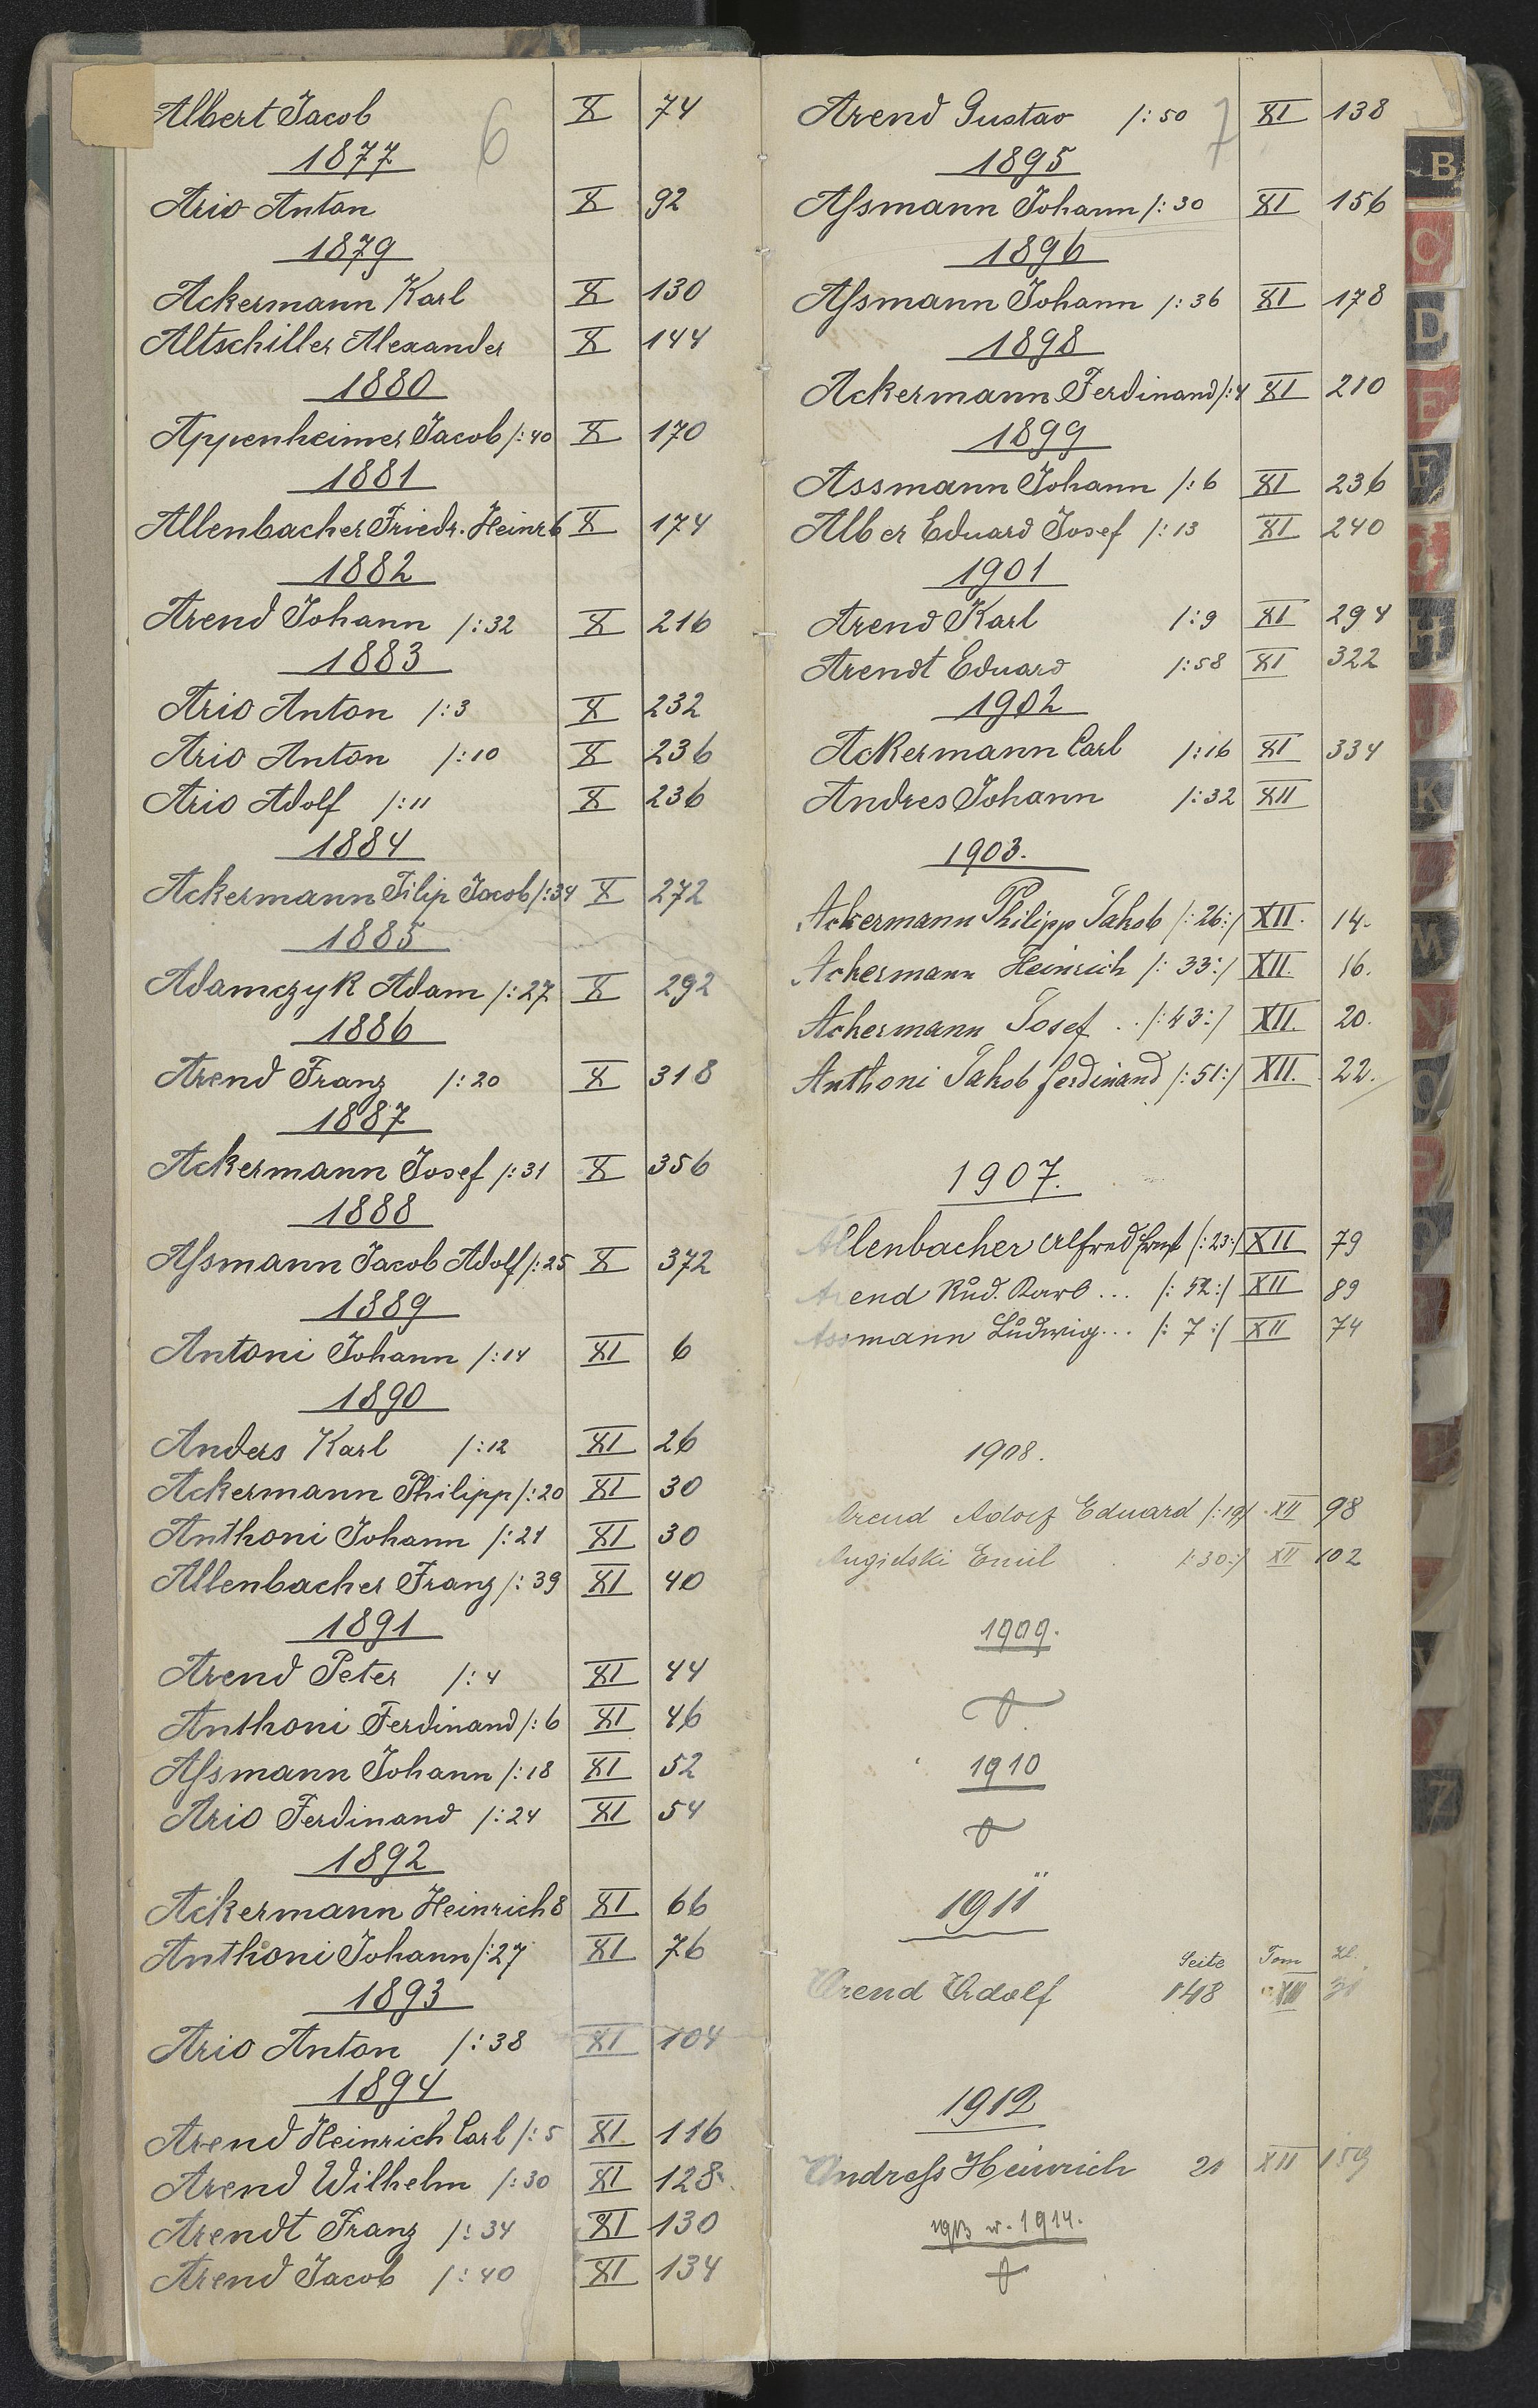 6
Albert Jacob X 74
1877
Ario Anton X 92
1879
Ackermann Karl X 130
Altschiller Alexander X 144
1880
Appenheimer Jacob /: 40 X 170
1881
Allenbacher Friedr. Heinr 6 X 174
1882
Arend Johann /: 32 X 216
1883
Ario Anton /: 3 X 232
Ario Anton /: 10 X 236
Ario Adolf /: 11 X 236
1884
Ackermann Filip Jacob /: 34 X 272
1885
Adamczyk Adam /: 27 X 292
1886
Arend Franz /: 20 X 318
1887
Ackermann Josef /: 31 X 356
1888
Aſsmann Jacob Adolf /: 25 X 372
1889
Antoni Johann /: 14 XI 6
1890
Anders Karl /: 12 XI 26
Ackermann Philipp /: 20 XI 30
Anthoni Johann /: 21 XI 30
Allenbacher Franz /: 39 XI 40
1891
Arend Peter /: 4 XI 44
Anthoni Ferdinand /: 6 XI 46
Aſsmann Johann /: 18 XI 52
Ario Ferdinand /: 24 XI 54
1892
Ackermann Heinrich 8 XI 66
Anthoni Johann /: 27 XI 76
1893
Ario Anton /: 38 XI 104
1894
Arend Heinrich Carl /: 5 XI 116
Arend Wilhelm /: 30 XI 128
Arendt Franz /: 34 XI 130
Arend Jacob /: 40 XI 134
7
Arend Gustav /: 50 XI 138
1895
Aſsmann Johann /: 30 XI 156
1896
Aſsmann Johann /: 36 XI 178
1898
Ackermann Ferdinand /: 4 XI 210
1899
Assmann Johann /: 6 XI 236
Alber Eduard Josef /: 13 XI 240
1901
Arend Karl /: 9 XI 294
Arendt Eduard /: 58 XI 322
1902
Ackermann Carl /: 16 XI 334
Andres Johann /: 32 XII
1903.
Ackermann Philipp Jakob /: 26 :/ XII. 14.
Ackermann Heinrich /: 33 :/ XII. 16.
Ackermann Josef .. /: 43 :/ XII. 20.
Anthoni Jakob Ferdinand /: 51 :/ XII. 22.
1907.
Allenbacher Alfred Ernst /: 23 :/ XII 79
Arend Rud. Karl ... /: 52 :/ XII 89
Assmann Ludwig... /: 7 :/ XII 74
1908.
Arend Adolf Eduard /: 19/ XII 98
Emil /: 30 :/ XII 102
1909.
1910
1911
Seite Tom
Arend Adolf 148 XIII
1912
Andreſs Heinrich 21 XII 159
1913 w. 1914.
B
C
D
E
F
G
H
J
K
M
N
O
P
Z